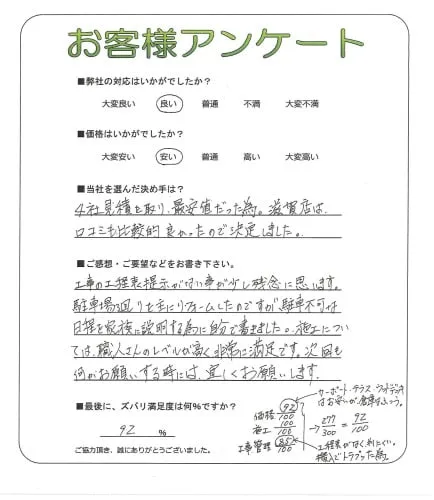 お客様アンケート
■弊社の対応はいかがでしたか？
大変良い 良い 普通 不満 大変不満
■価格はいかがでしたか？
大変安い 安い 普通 高い 大変高い
■当社を選んだ決め手は？
4社見積を取り、最安値だった為。滋賀店は、
口コミも比較的良かったので決定しました。
■ご感想・ご要望などをお書き下さい。
工事の工程表提示がない事が少し残念に思います。
駐車場廻りを主にリフォームしたのですが駐車不可な
日程を家族に説明する為に自分で書きました。施工につい
ては、職人さんのレベルが高く非常に満足です。次回も
何かお願いする時には、宜しくお願いします。
■最後に、ズバリ満足度は何％ですか？
92 ％
ご協力頂き、誠にありがとうございました。
カーポート・テラス・ウッドデッキ
はお安いが、倉庫はふつう。
価格 92/100
施工 100/100
工事管理 85/100
→ 277/300 = 92/100
工程表がなく判りにくい。
搬入でトラブった為。